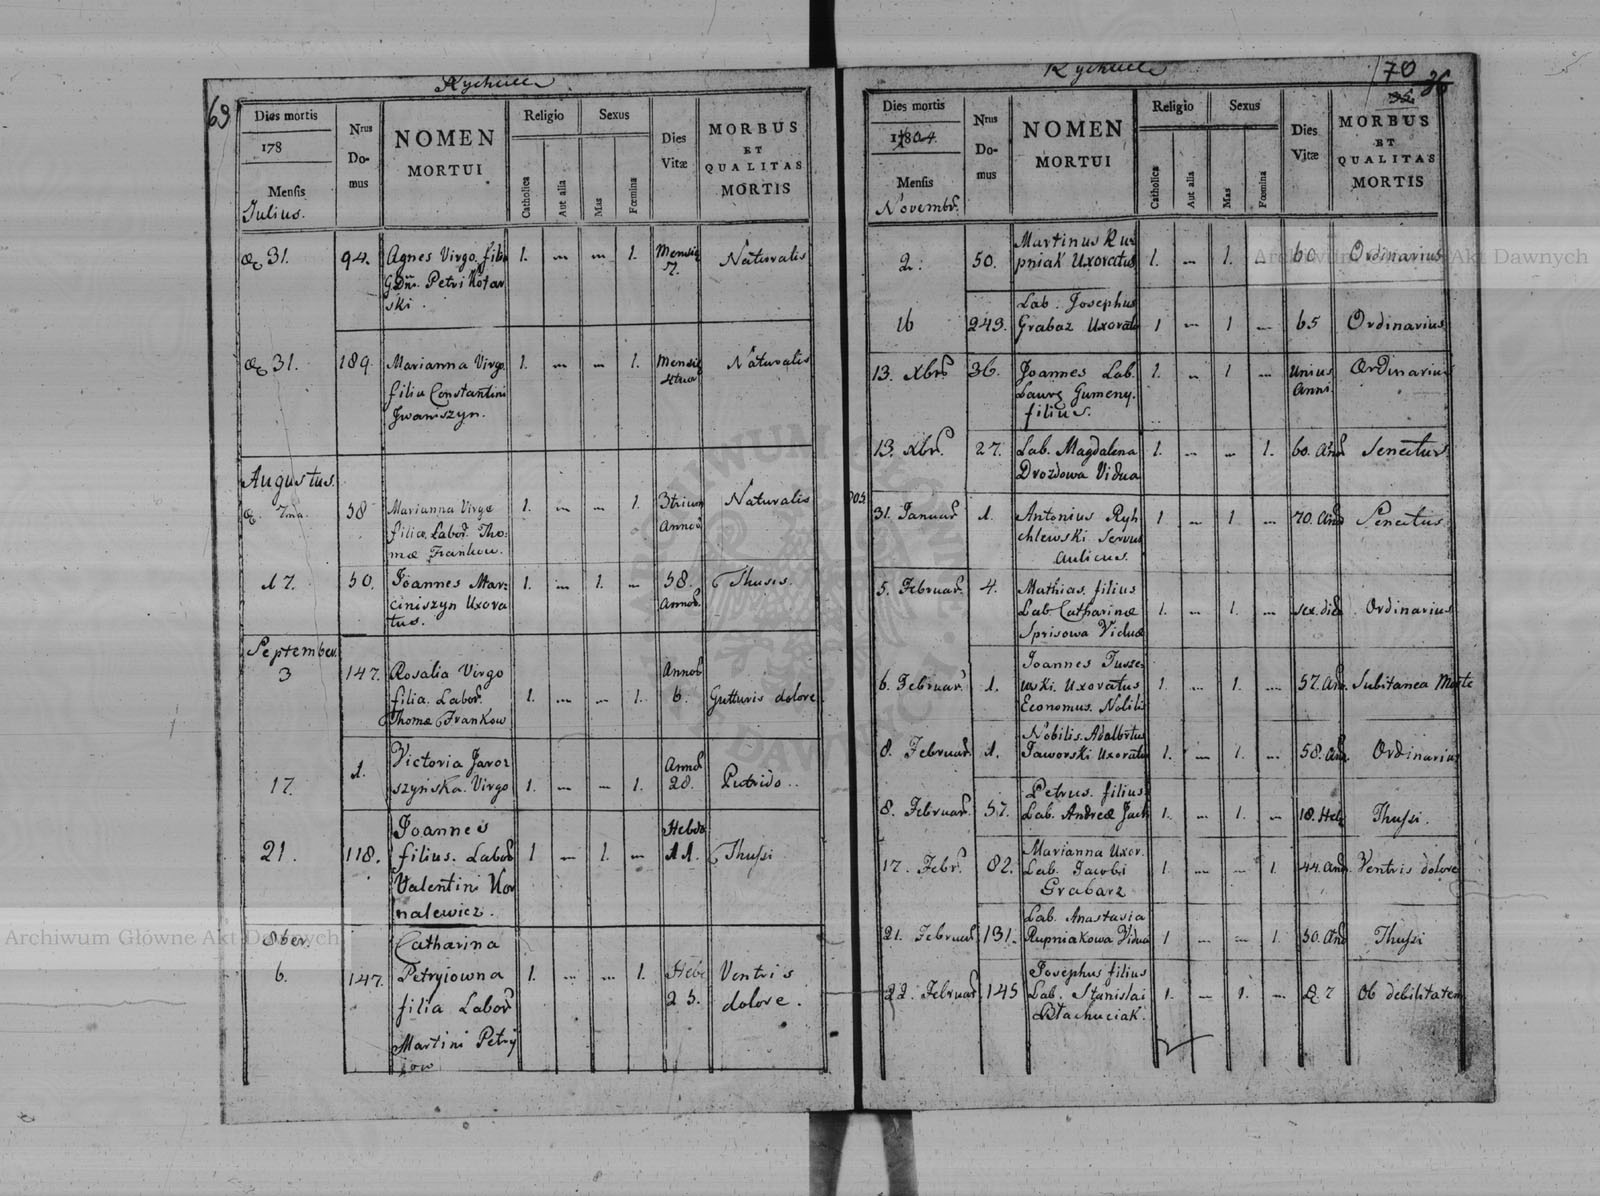 69
Dies mortis
178
Mensis
Julius.
Nrus
Do-
mus
NOMEN
MORTUI
Religio
Catholica
Aut alia
Sexus
Mas
Fœmina
Dies
Vitæ
MORBUS
ET
QUALITAS
MORTIS
31. 94. Agnes Virgo. filia 1. — — 1. Mensis Naturalis
Petri Kotar
ski.
31. 189. Marianna Virgo 1. — — 1. Mensis Naturalis
filia Constantini
Jwaniszyn.
Augustus.
7ma. 58 Marianna Virgo 1. — — 1. 3trium Naturalis
filia Labor. Tho: Annor
mæ Frankow.
17. 50. Joannes Mar: 1. — 1. — 58. Thusis.
ciniszyn Uxora Annor.
tus.
September.
3 147. Rosalia Virgo Annor
filia. Labor. 1. — — 1. 6. Gutturis dolore
Thomæ Frankow
17. 1. Victoria Jaror Annor
szyńska. Virgo 1. — — 1. 28. Putrido..
21. 118. Joannes Hebdo
filius. Labor 1 — 1. — 11. Thussi
Valentini Ko
nalewicz.
8ber. Catharina
6. 147. Petryiowna 1. — — 1. Hebd Ventris
filia Labor 25. dolore.
Martini Petry
iow
70
36
Dies mortis
1804.
Mensis
Novembr.
Nrus
Do-
mus
NOMEN
MORTUI
Religio
Catholica
Aut alia
Sexus
Mas
Fœmina
Dies
Vitæ
MORBUS
ET
QUALITAS
MORTIS
2. 50. Martinus Ru= 1. — 1. — 60 Ordinarius
pniak Uxoratus
16 243. Lab. Josephus
Grabaz Uxorat 1 — 1 — 65 Ordinarius
13. Xbris 36. Joannes Lab. 1. — 1 — Unius Ordinarius
Laur Gumeny. Anni.
filius.
13. Xbr. 27. Lab. Magdalena 1. — — 1. 60. Ann Senectus
Drozdowa Vidua
805.
31. Januar 1. Antonius Ryh 1 — 1 — 70. Ann Senectus
chlewski Servus
Aulicus.
5. Februar. 4. Mathias. filius
Lab Catharinæ 1. — 1. — sex. die Ordinarius
Sprisowa Viduæ
6. Februar. 1. Joannes Tusze
wski. Uxoratus 1. — 1. — 57. Ann. Subitanea Morte
Economus. Nobilis
8. Februar. 1. Nobilis. Adalbertus
Jaworski Uxoratu 1. — 1. — 58. Ann. Ordinarius
8. Februar. 57. Petrus. filius
Lab. Andreæ Jach 1. — 1. — 18. Heb Thussi.
17. Febr. 82. Marianna Uxor.
Lab. Jacobi 1. — — 1. 44. Ann. Ventris dolore
Grabarz
21. Februar 131. Lab. Anastasia
Rupniakowa Vidua 1 — — 1. 50. Ann Thussi
22. Februar 145 Josephus filius
Lab. Stanislai 1. — 1. — 7 Ob debilitatem
Ptachuciak.
Archiwum Główne Akt Dawnych
Archiwum Główne Akt Dawnych